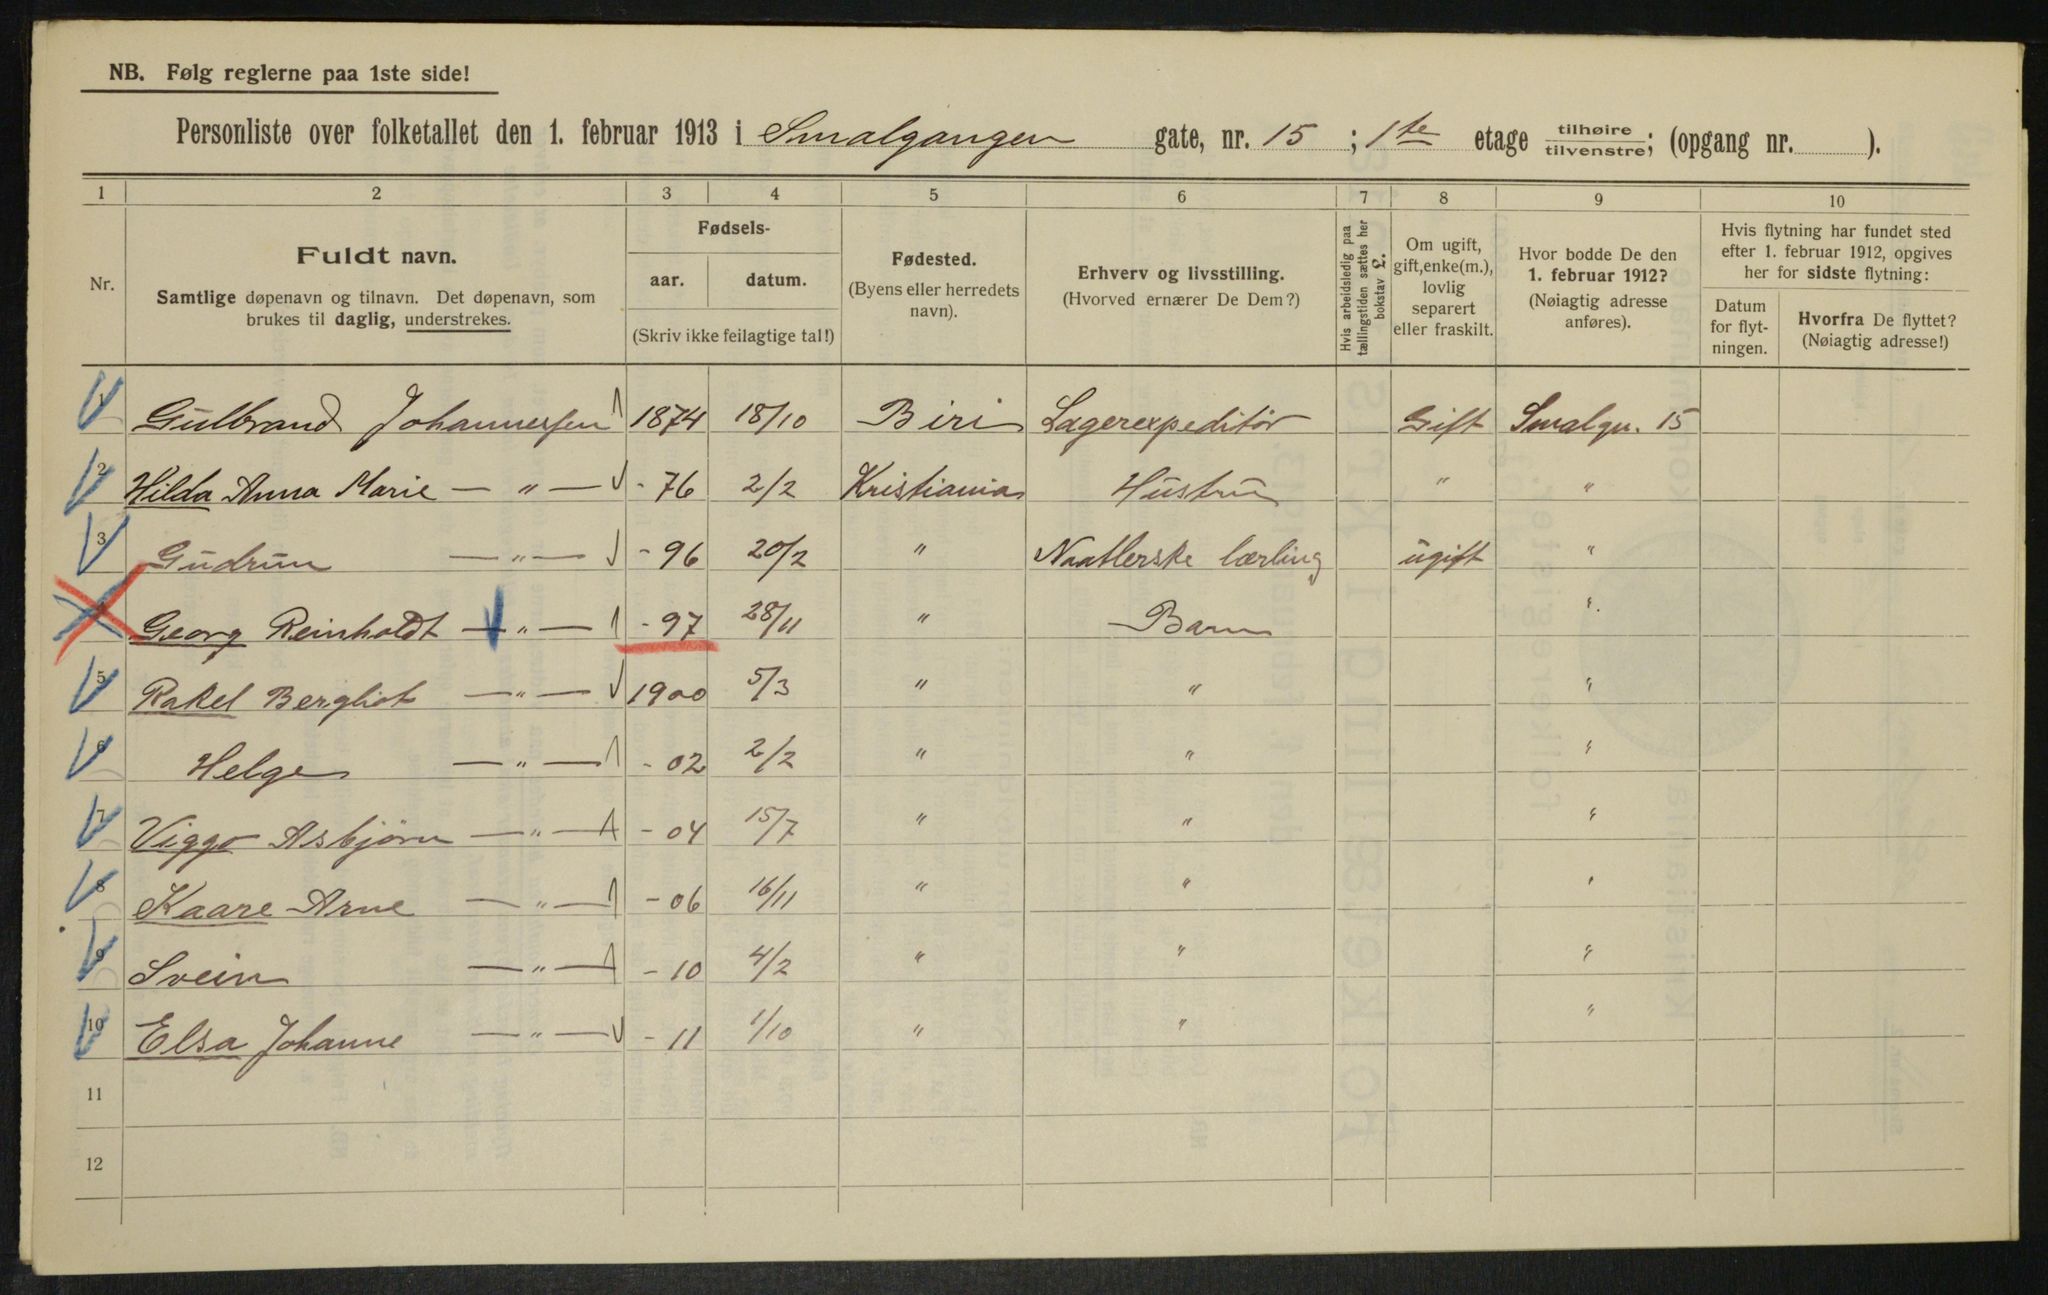 NB. Følg reglerne paa 1ste side!
Personliste over folketallet den 1. februar 1913 i Smalgangen gate, nr. 15 ; 1te etage tilhøire/tilvenstre; (opgang nr. ).
1 2 3 4 5 6 7 8 9 10
Nr.
Fuldt navn.
Samtlige døpenavn og tilnavn. Det døpenavn, som
brukes til daglig, understrekes.
Fødsels-
aar. datum.
(Skriv ikke feilagtige tal!)
Fødested.
(Byens eller herredets
navn).
Erhverv og livsstilling.
(Hvorved ernærer De Dem?)
Hvis arbeidsledig paa
tællingstiden sættes her
bokstav L.
Om ugift,
gift, enke(m.),
lovlig
separert
eller fraskilt.
Hvor bodde De den
1. februar 1912?
(Nøiagtig adresse
anføres).
Hvis flytning har fundet sted
efter 1. februar 1912, opgives
her for sidste flytning:
Datum
for flyt-
ningen.
Hvorfra De flyttet?
(Nøiagtig adresse!)
1 Gulbrand Johannessen 1874 18/10 Biri Lagerexpeditör Gift Smalgn. 15
2 Hilda Anna Marie — " — - 76 2/2 Kristiania Hustru " "
3 Gudrun — " — - 96 20/2 " Naatlerske lærling ugift "
Georg Reinholdt — " — - 97 28/11 " Barn "
5 Rakel Bergliot — " — 1900 5/3 " " "
6 Helge — " — - 02 2/2 " " "
7 Viggo Asbjörn — " — - 04 15/7 " " "
8 Kaare Arne — " — - 06 16/11 " " "
9 Svein — " — - 10 4/2 " " "
10 Elsa Johanne — " — - 11 1/10 " " "
11
12